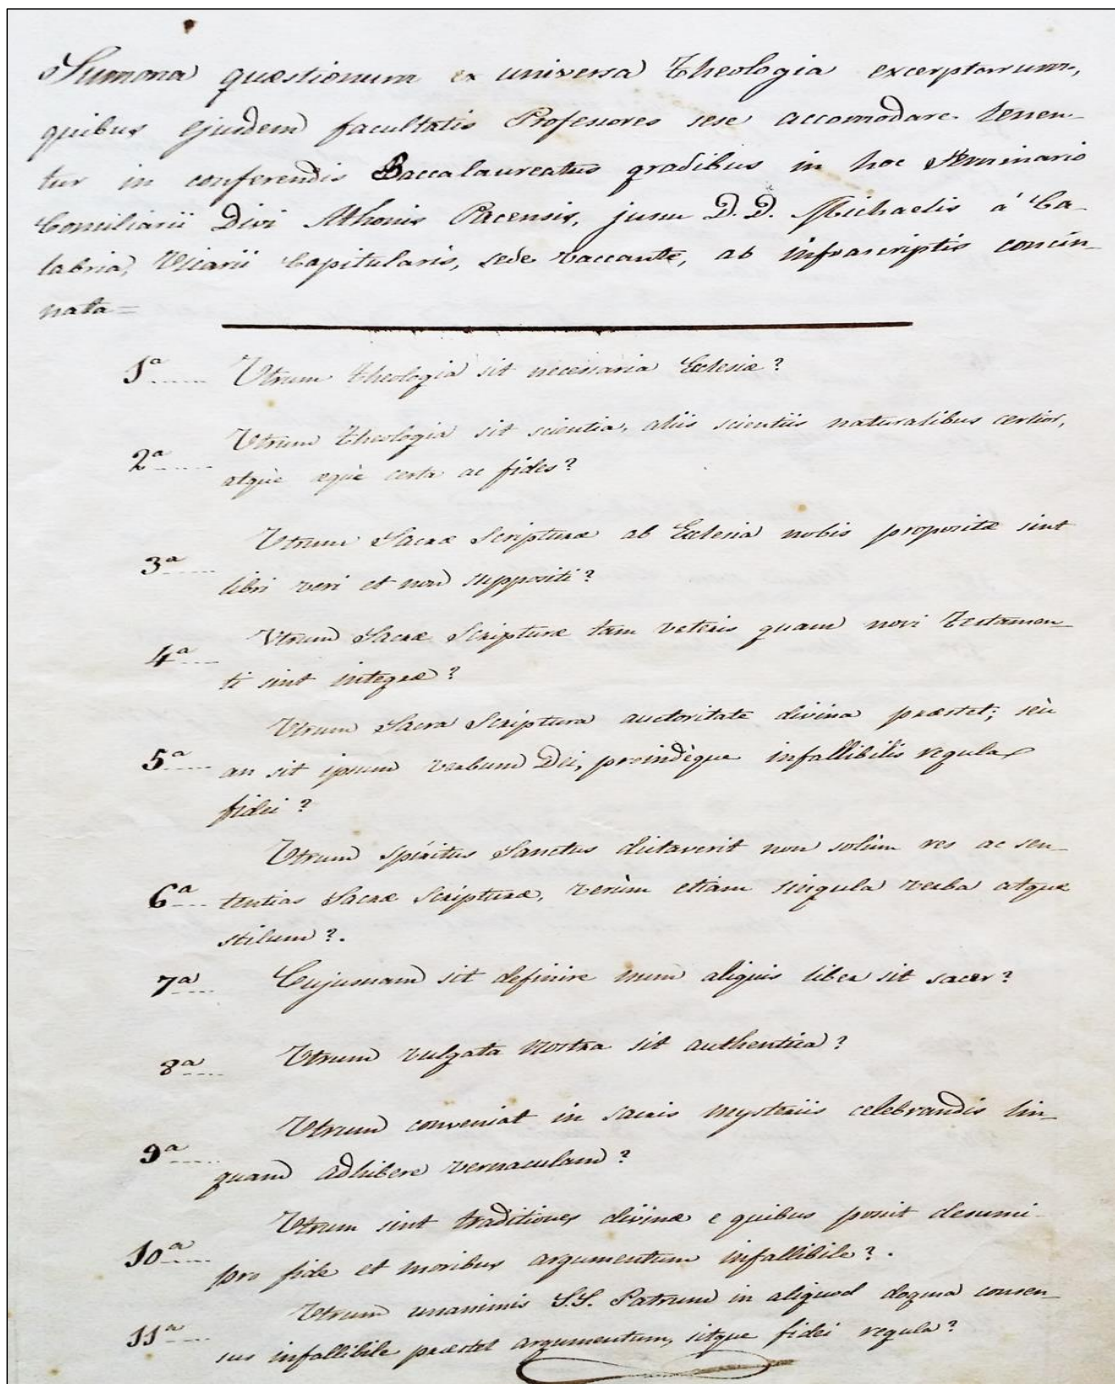 Summa quæstionum ex universa Theologia excerptarum,
quibus ejusdem facultatis Professores sese accomodare tenen-
tur in conferendis Baccalaureatus gradibus in hoc Seminario
Conciliarii Divi Athonis Pacensis, jussu D. D. Michaelis á Ca-
labria, Vicarii Capitularis, sede vaccante, ab infrascriptis concin-
nata=
1ª..... Utrum Theologia sit necessaria Eclesiæ?
Utrum Theologia sit scientia, aliis scientiis naturalibus certior,
2ª.....
atquè æquè certa ac fides?
Utrum Sacræ Scripturæ ab Eclesia nobis propositæ sint
3ª.....
libri veri et non suppositi?
Utrum Sacræ Scripturæ tam veteris quam novi Testamen-
4ª....
ti sint integræ?
Utrum Sacra Scriptura auctoritate divina præstet; seù
5ª.... an sit ipsum verbum Dei, proindèque infallibilis regula
fidei?
Utrum Spiritus Sanctus dictaverit non solùm res ac sen-
6ª.... tentias Sacræ Scripturæ, verùm etiam singula verba atque
stilum?.
7ª.... Cujusnam sit definire num aliquis liber sit sacer?
8ª.... Utrum vulgata nostra sit authentica?
Utrum conveniat in sacris mysteriis celebrandis lin-
9ª.....
guam adhibere vernaculam?
Utrum sint traditiones divinæ e quibus possit desumi
10ª.....
pro fide et moribus argumentum infallibile?.
Utrum unanimis S.S. Patrum in aliquod dogma consen-
11ª.....
sus infallibile præstet argumentum, sitque fidei regula?